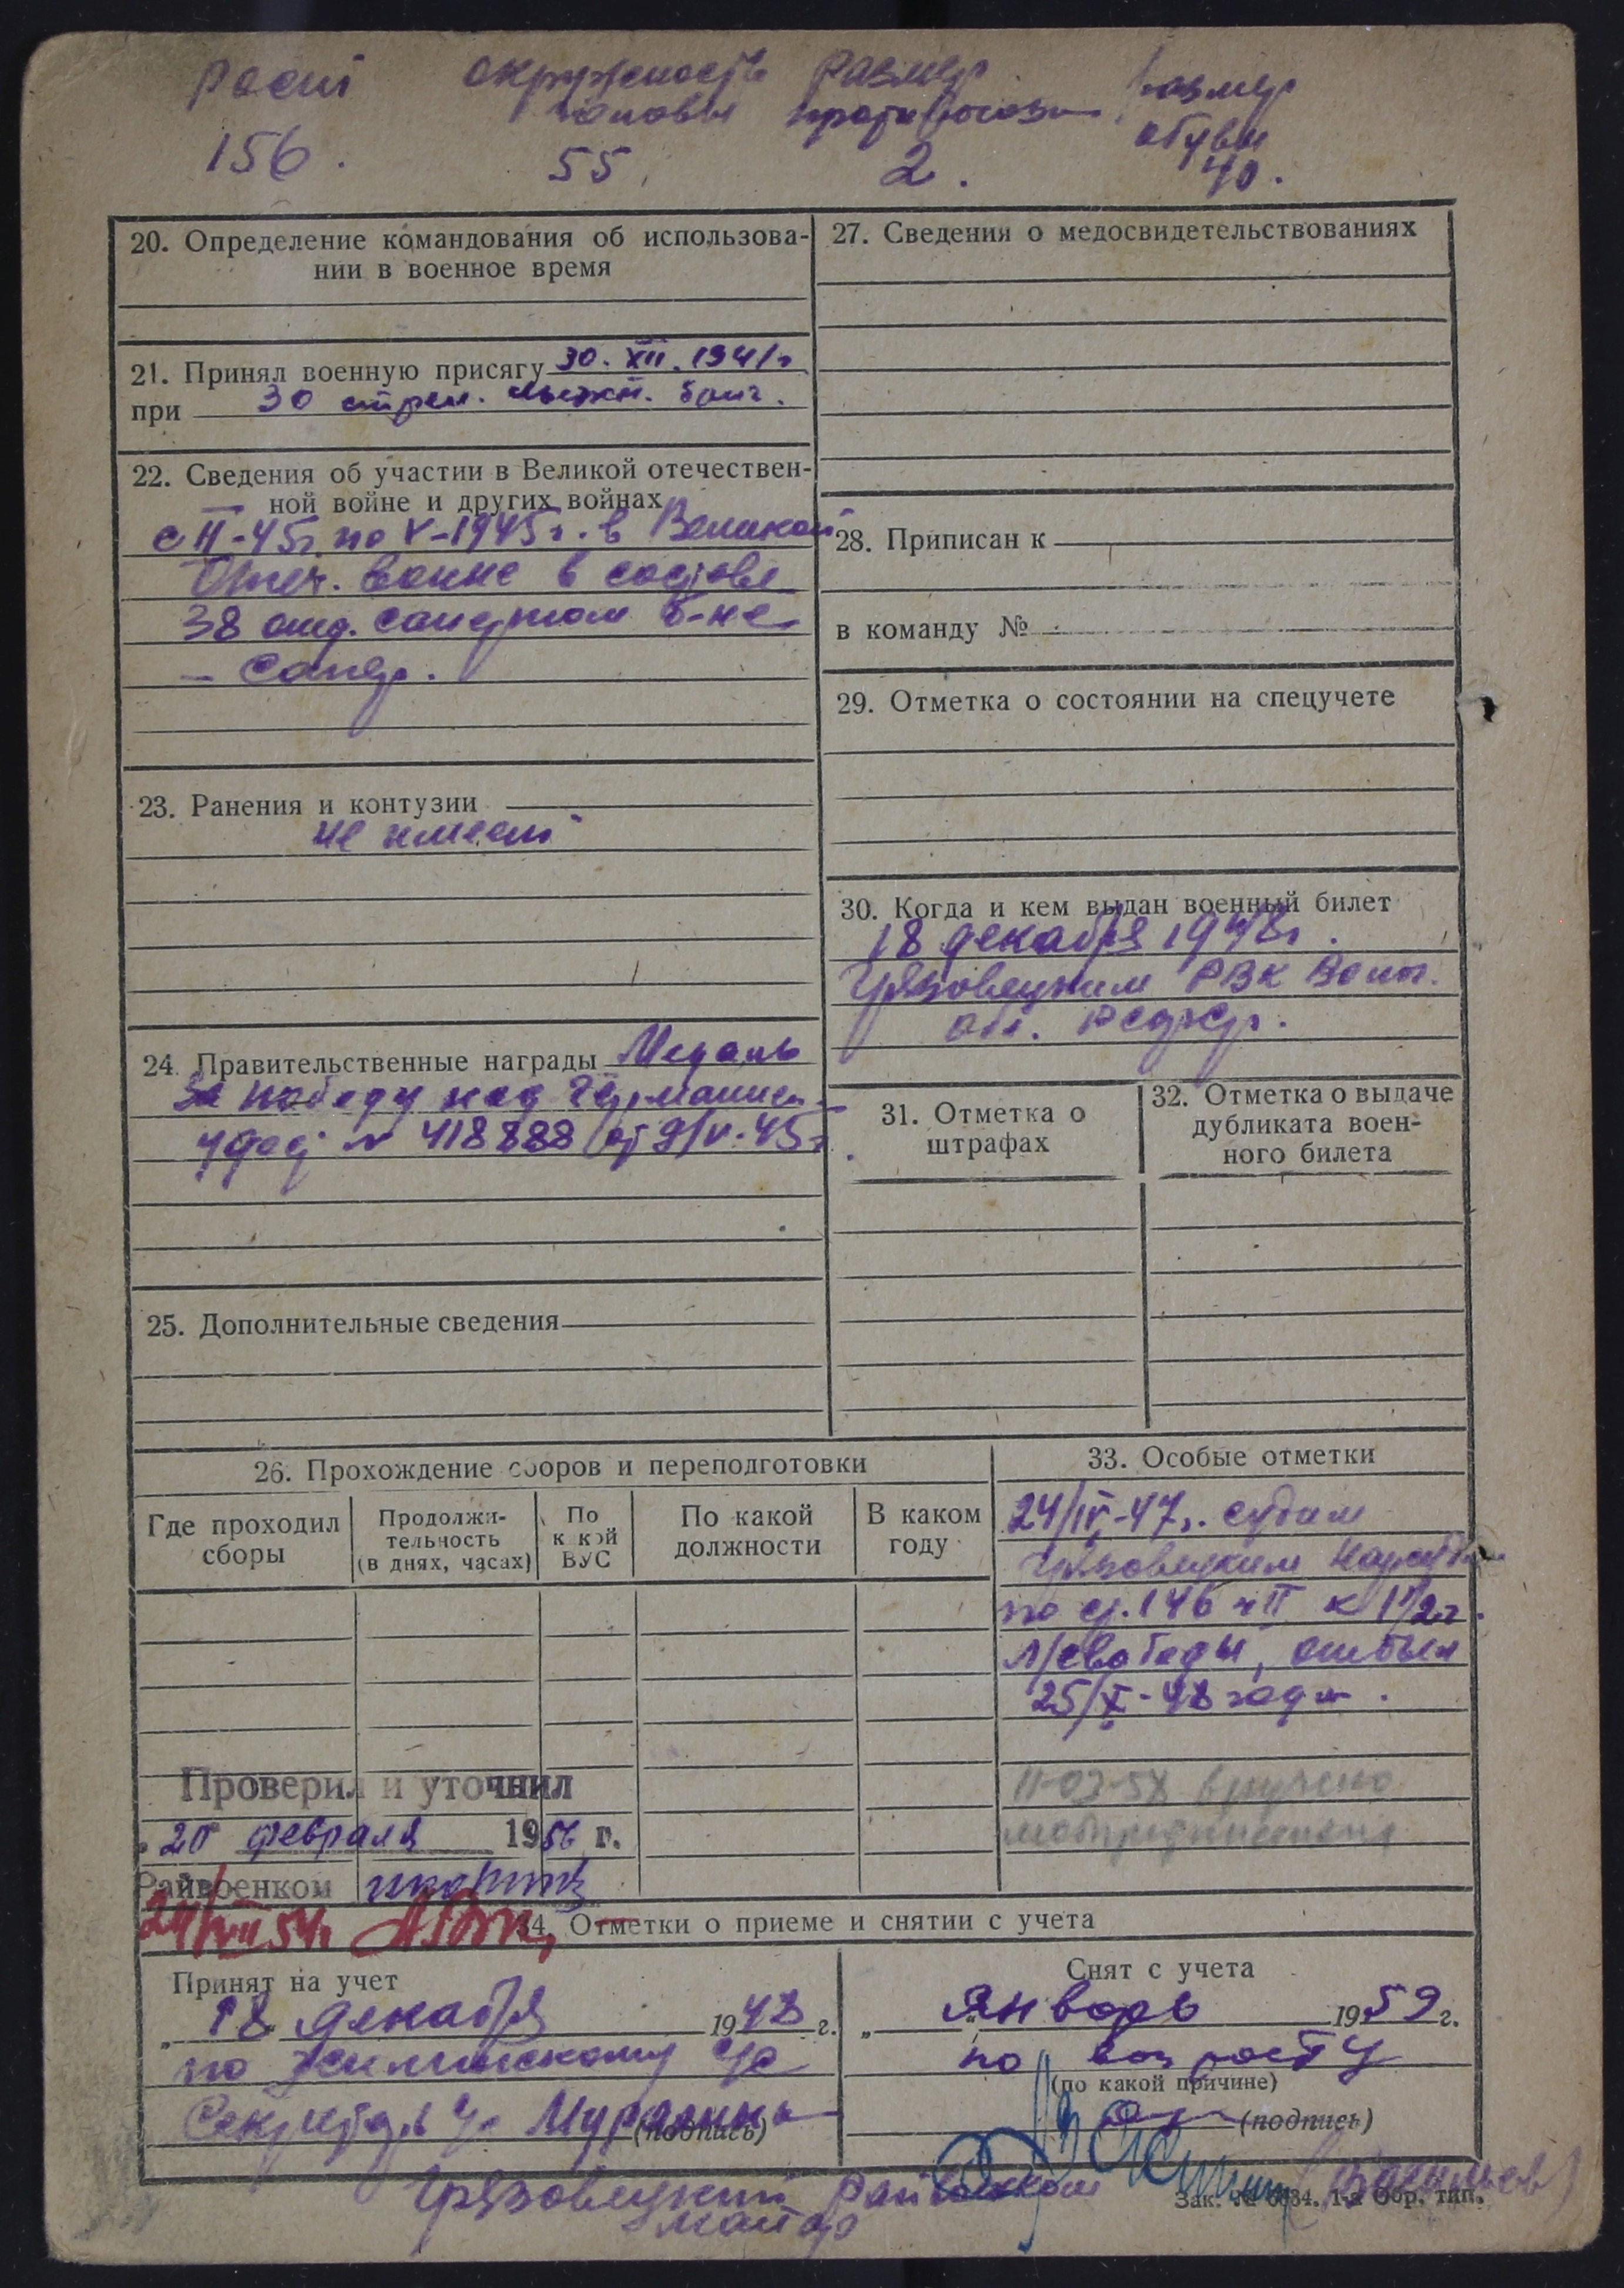 Рост окружность размер размер
головы противогаза обуви
156. 55. 2. 40.
20. Определение командования об использова-
нии в военное время
21. Принял военную присягу 30. XII. 1941 г
при 30 стрел. лыжн. бриг.
22. Сведения об участии в Великой отечествен-
ной войне и других войнах
с II-45г. по V-1945г. в Великой
Отеч. войне в составе
38 отд. саперном б-не
– Сапер.
23. Ранения и контузии
не имеет
24. Правительственные награды Медаль
За победу над Германией
удост № 418888 от 9/V-45г.
25. Дополнительные сведения
27. Сведения о медосвидетельствованиях
28. Приписан к
в команду №
29. Отметка о состоянии на спецучете
30. Когда и кем выдан военный билет
18 декабря 1948г.
Грязовецким РВК Волог.
обл.
31. Отметка о
штрафах
32. Отметка о выдаче
дубликата воен-
ного билета
26. Прохождение сборов и переподготовки
Где проходил
сборы
Продолжи-
тельность
(в днях, часах)
По
какой
ВУС
По какой
должности
В каком
году
33. Особые отметки
24/IV-47г. судим
Грязовецким Нарсудом
по ст. 146 ч II к 1 1/2 г.
л/свободы, отбыл
25/X-48 года.
11-03-58 вручено
мобпредписание
Проверил и уточнил
20 февраля 1956 г.
Райвоенком
24/VIII 54г.
34. Отметки о приеме и снятии с учета
Принят на учет
18 декабря 1948 г.
по
Секретарь
(подпись)
Снят с учета
„ “ Январь 1959 г.
по возрасту
(по какой причине)
(подпись)
Грязовецкий Райвоенком
майор (Васильев)
Зак. № 6634. 1-я Обр. тип.